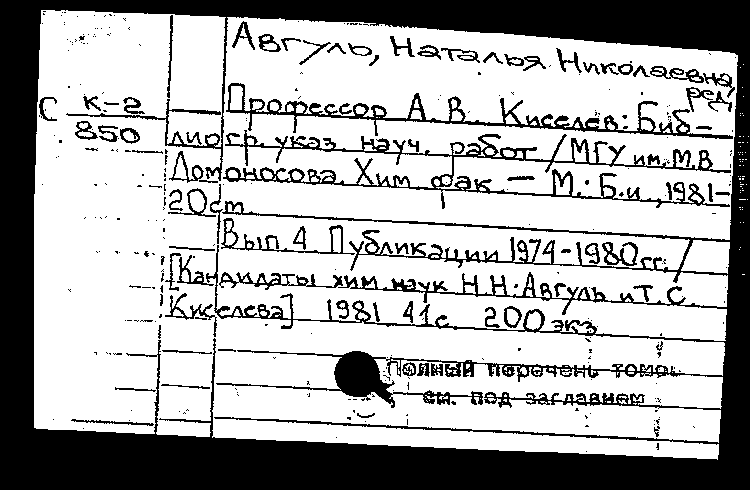 Авгуль, Наталья Николаевна,
ред.
С К-2
850
Профессор А. В. Киселев: Биб-
лиогр. указ. науч. работ / МГУ им. М.В
Ломоносова. Хим. фак. — М.: Б.и., 1981-
20 см.
Вып. 4 Публикации 1974-1980 гг. /
[Кандидаты хим. наук Н.Н. Авгуль и Т.С.
Киселева] 1981 41 с. 200 экз
Полный перечень томов
см. под заглавием